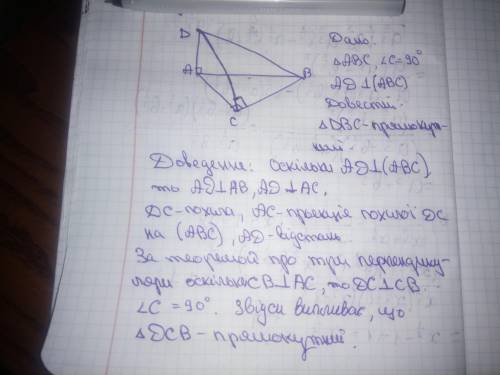 D
A
B
C
Дано:
△ABC, ∠C=90°
AD⊥(ABC)
Довести:
△DBC-прямокут-
ний
Доведення: Оскільки AD⊥(ABC),
то AD⊥AB, AD⊥AC,
DC-похила, AC-проекція похилої DC
на (ABC), AD-відстань
За теоремой про три перпендику-
ляри оскільки CB⊥AC, то DC⊥CB
∠C = 90°. Звідси випливає, що
△DCB - прямокутний.